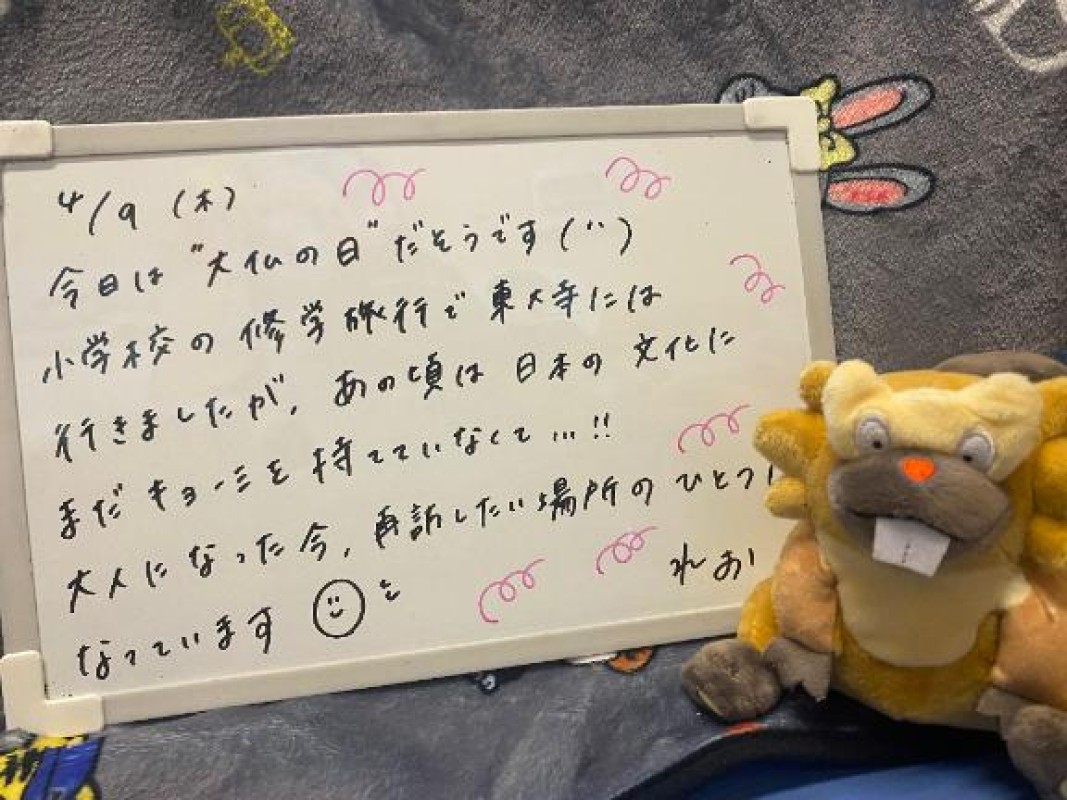 4/9 (木)
今日は"大仏の日"だそうです(¨)
小学校の修学旅行で東大寺には
行きましたが、あの頃は日本の文化に
まだキョーミを持てていなくて…!!
大人になった今、再訪したい場所のひとつに
なっています
れお